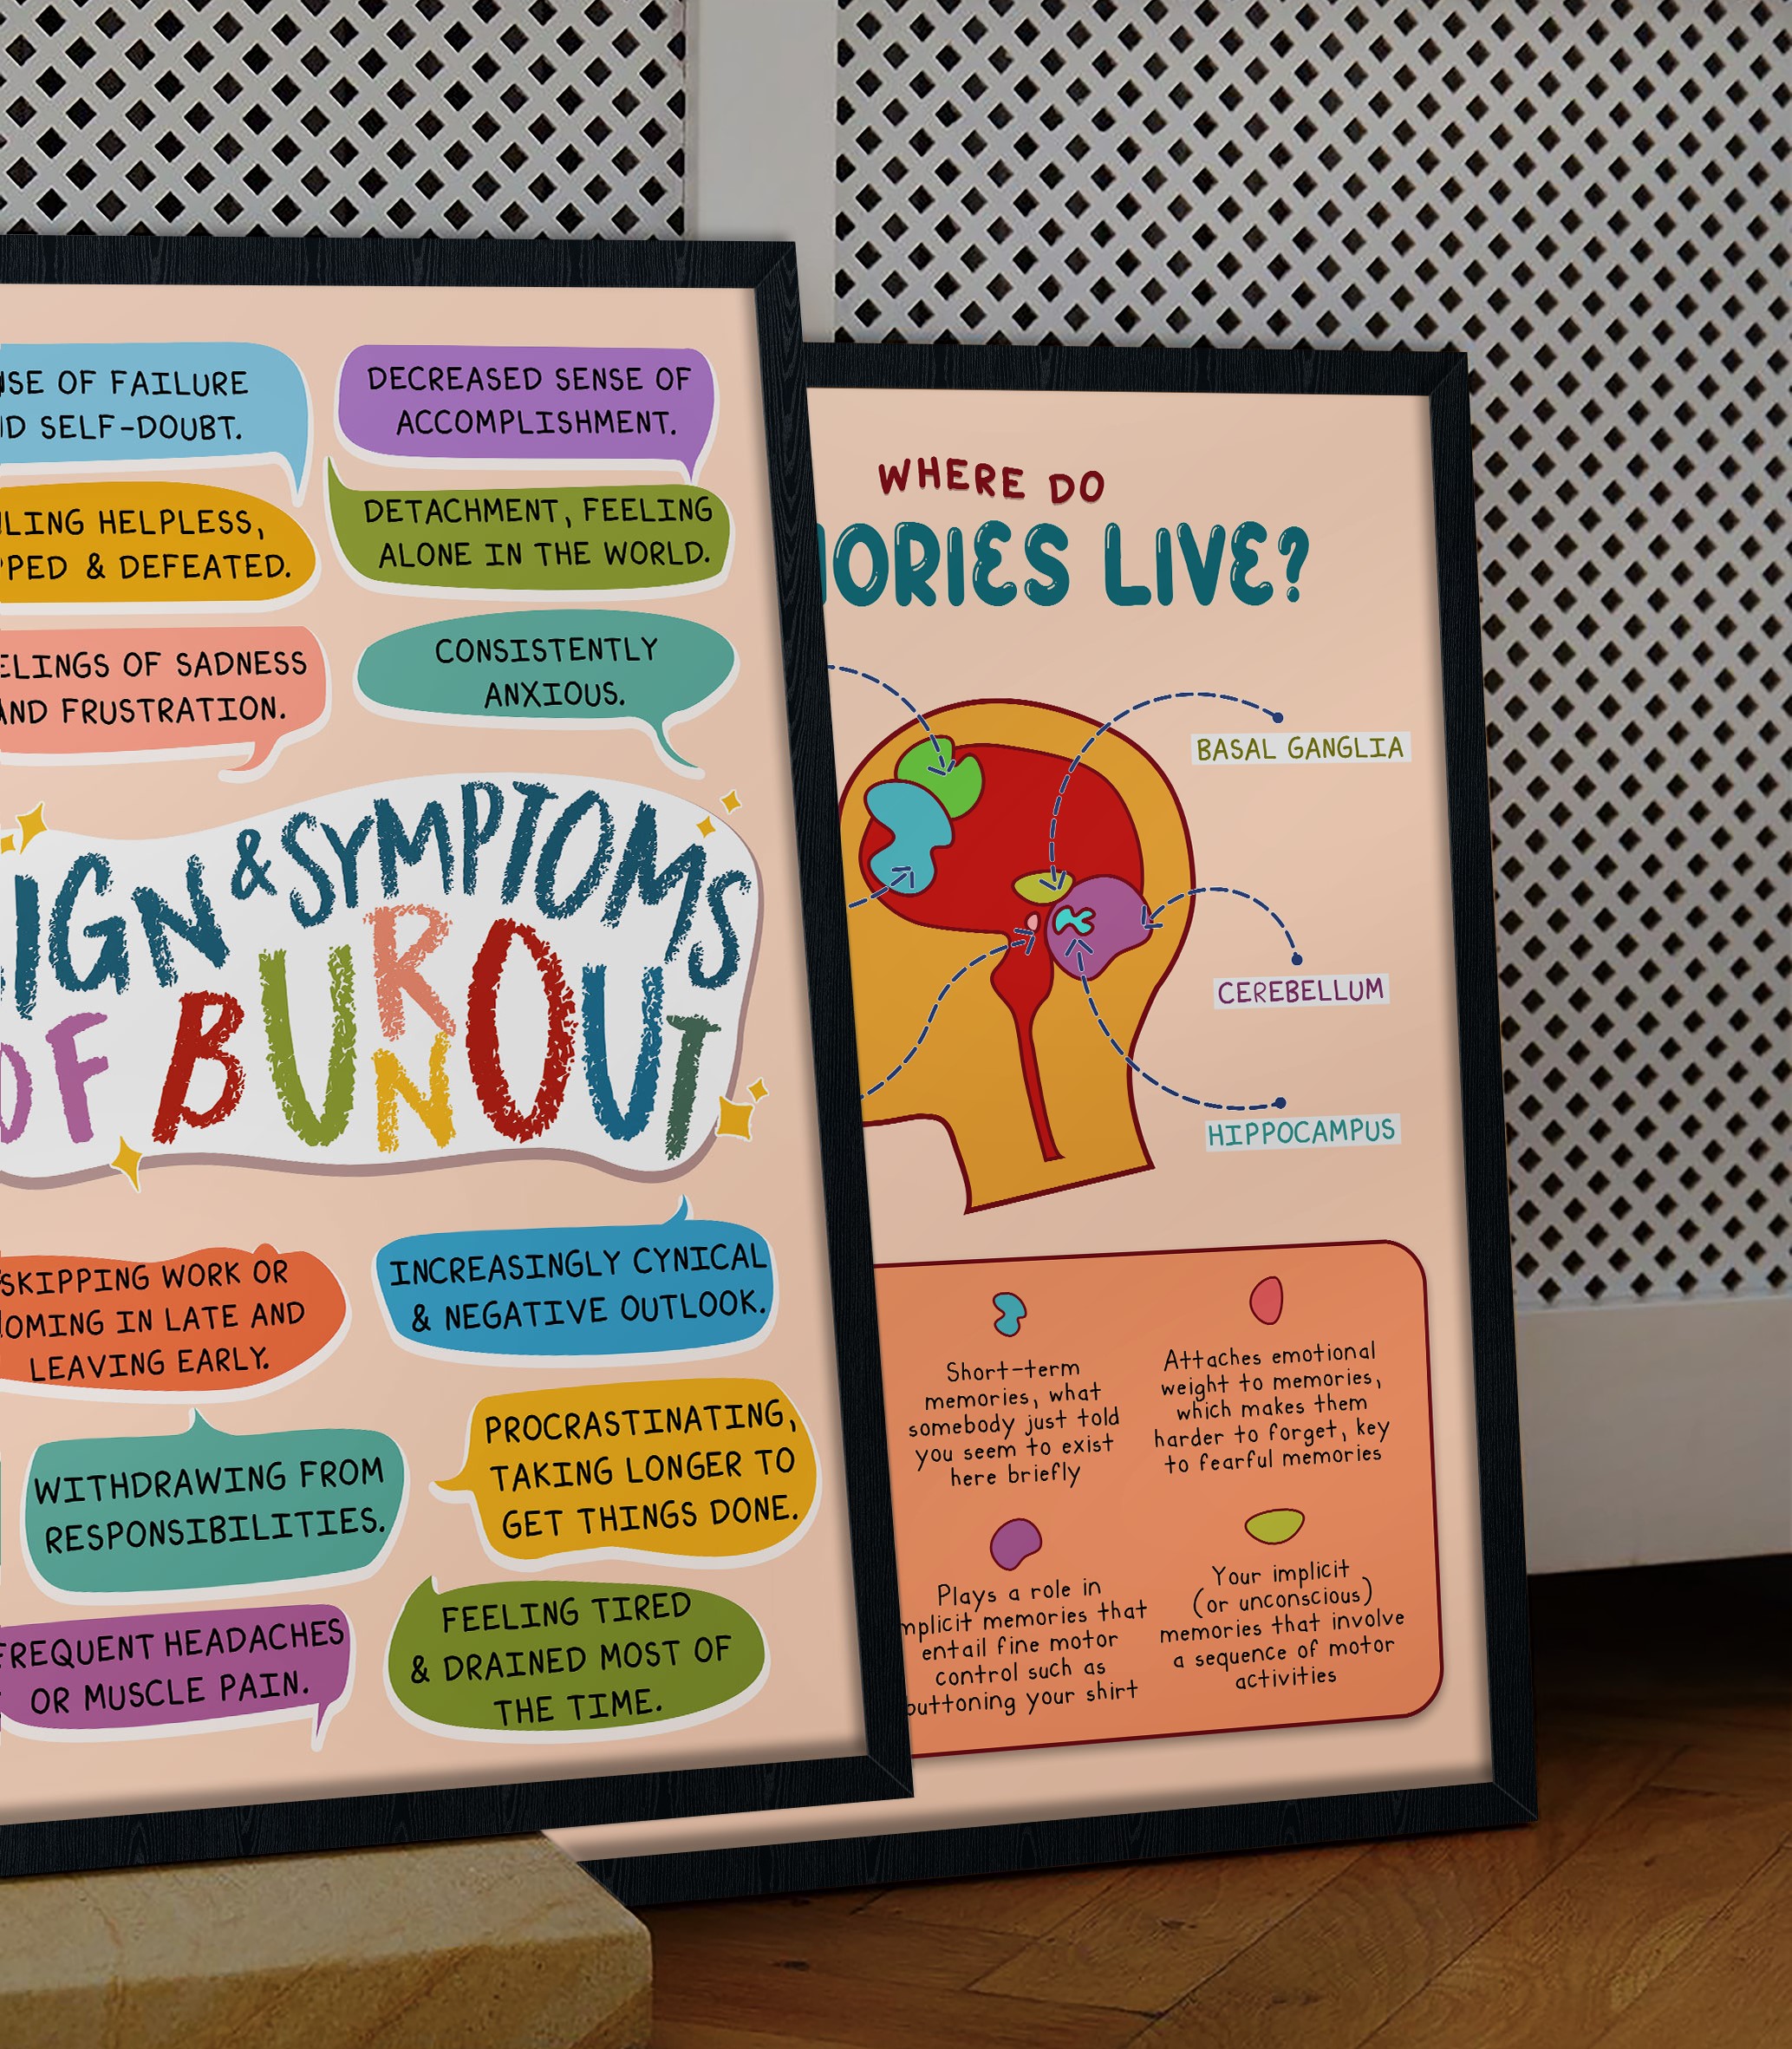 SE OF FAILURE
D SELF-DOUBT.
DECREASED SENSE OF
ACCOMPLISHMENT.
LING HELPLESS,
PPED & DEFEATED.
DETACHMENT, FEELING
ALONE IN THE WORLD.
ELINGS OF SADNESS
AND FRUSTRATION.
CONSISTENTLY
ANXIOUS.
IGN & SYMPTOMS
OF BURNOUT
SKIPPING WORK OR
OMING IN LATE AND
LEAVING EARLY.
INCREASINGLY CYNICAL
& NEGATIVE OUTLOOK.
WITHDRAWING FROM
RESPONSIBILITIES.
PROCRASTINATING,
TAKING LONGER TO
GET THINGS DONE.
FREQUENT HEADACHES
OR MUSCLE PAIN.
FEELING TIRED
& DRAINED MOST OF
THE TIME.
WHERE DO
ORIES LIVE?
BASAL GANGLIA
CEREBELLUM
HIPPOCAMPUS
Short-term
memories, what
somebody just told
you seem to exist
here briefly
Attaches emotional
weight to memories,
which makes them
harder to forget, key
to fearful memories
Plays a role in
mplicit memories that
entail fine motor
control such as
buttoning your shirt
Your implicit
(or unconscious)
memories that involve
a sequence of motor
activities